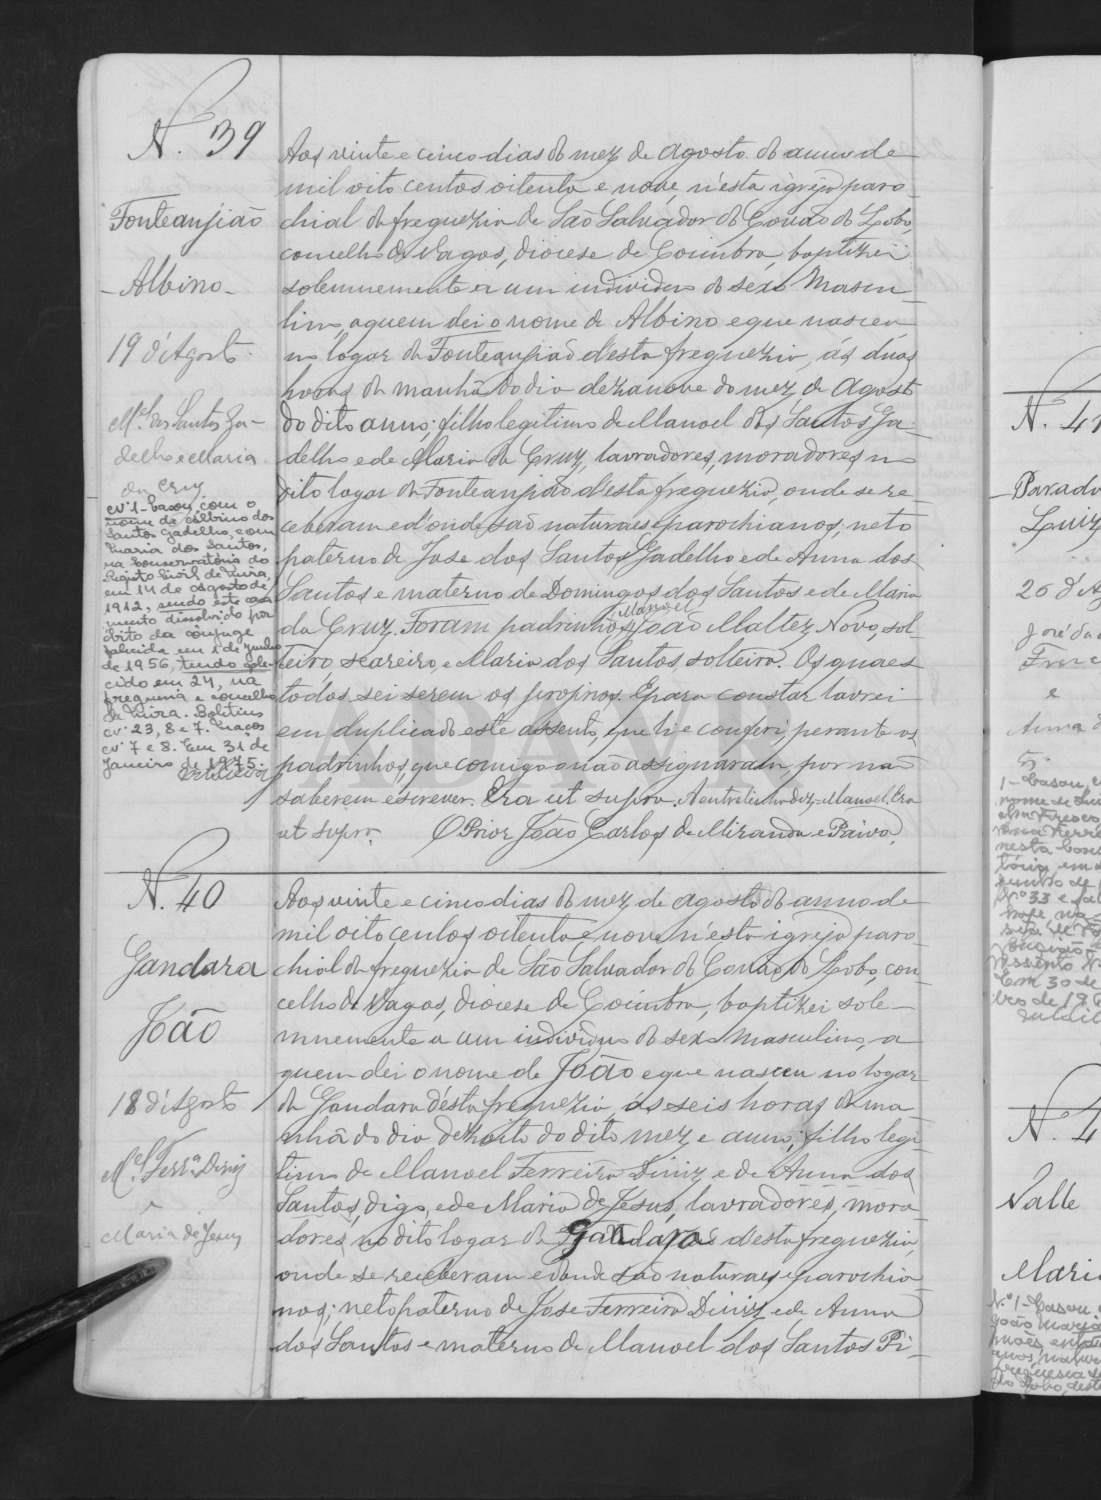 N. 39
Fonteanjião
Albino
19 d'Agosto
Mel dos Santos Ga-
delho e Maria
da Cruz
Nº 1 - Casou, com o
nome de Albino dos
Santos Gadelho, com
Maria dos Santos,
na Conservatória do
Registo Civil de Mira,
em 14 de Agosto de
1912, sendo este casa-
mento dissolvido por
óbito da cônjuge
falecida em 1 de Junho
de 1956, tendo fale-
cido em 24, na
freguesia e concelho
de Mira. Boletins
nº 23, 8 e 7. Maços
nº 7 e 8. Em 31 de
Janeiro de 1975.
Aos vinte e cinco dias do mez de Agosto do anno de
mil oito centos oitenta e nove n'esta igreja paro-
chial da freguezia de São Salvador do Covão do Lobo,
concelho de Vagos, diocese de Coimbra, baptizei
solemnemente a um individuo do sexo Mascu-
lino, a quem dei o nome de Albino e que nasceu
no logar da Fonteanjião d'esta freguezia, ás duas
horas da manhã do dia dezanove do mez de Agosto
do dito anno; filho legitimo de Manoel dos Santos Ga-
delho e de Maria da Cruz, lavradores, moradores no
dito logar da Fonteanjião d'esta freguezia, onde se re-
ceberam e d'onde são naturaes e parochianos, neto
paterno de Jose dos Santos Gadelho e de Anna dos
Santos e materno de Domingos dos Santos e de Maria
da Cruz. Foram padrinhos Manoel João Maltez Novo, sol-
teiro, seareiro, e Maria dos Santos, solteira. Os quaes
todos sei serem os proprios. E para constar lavrei
em duplicado este assento, que li e conferi, perante os
padrinhos, que comigo não assignaram, por não
saberem escrever. Era ut supra. A entrelinha diz = Manoel. Era
ut supra. O Prior João Carlos de Miranda e Paiva.
N. 40
Gandara
João
18 d'Agosto
Mel Ferra Diniz
e
Maria de Jesus
Aos vinte e cinco dias do mez de Agosto do anno de
mil oito centos oitenta e nove n'esta igreja paro-
chial da freguezia de São Salvador do Covão do Lobo, con-
celho de Vagos, diocese de Coimbra, baptizei sole-
mnemente a um individuo do sexo Masculino, a
quem dei o nome de João e que nasceu no logar
da Gandara d'esta freguezia, ás seis horas da ma-
nhã do dia dezoito do dito mez e anno; filho legi-
timo de Manoel Ferreira Diniz e de Anna dos
Santos, digo, e de Maria de Jesus, lavradores, mora-
dores no dito logar da Gandara d'esta freguezia,
onde se receberam e donde são naturaes e parochia-
nos; neto paterno de Jose Ferreira Diniz e de Anna
dos Santos e materno de Manoel dos Santos Pi-
N. 4
Parada
Luiz
26 d'Ag
José da
e
Anna d
1 - Casou, c
nome de Lui
nesta Cons
tória em
Nº 33 e fal
Em 30 de
N. 4
Valle
Maria
Nº 1 - Casou
João Maria
freguesia d
do Lobo, deste